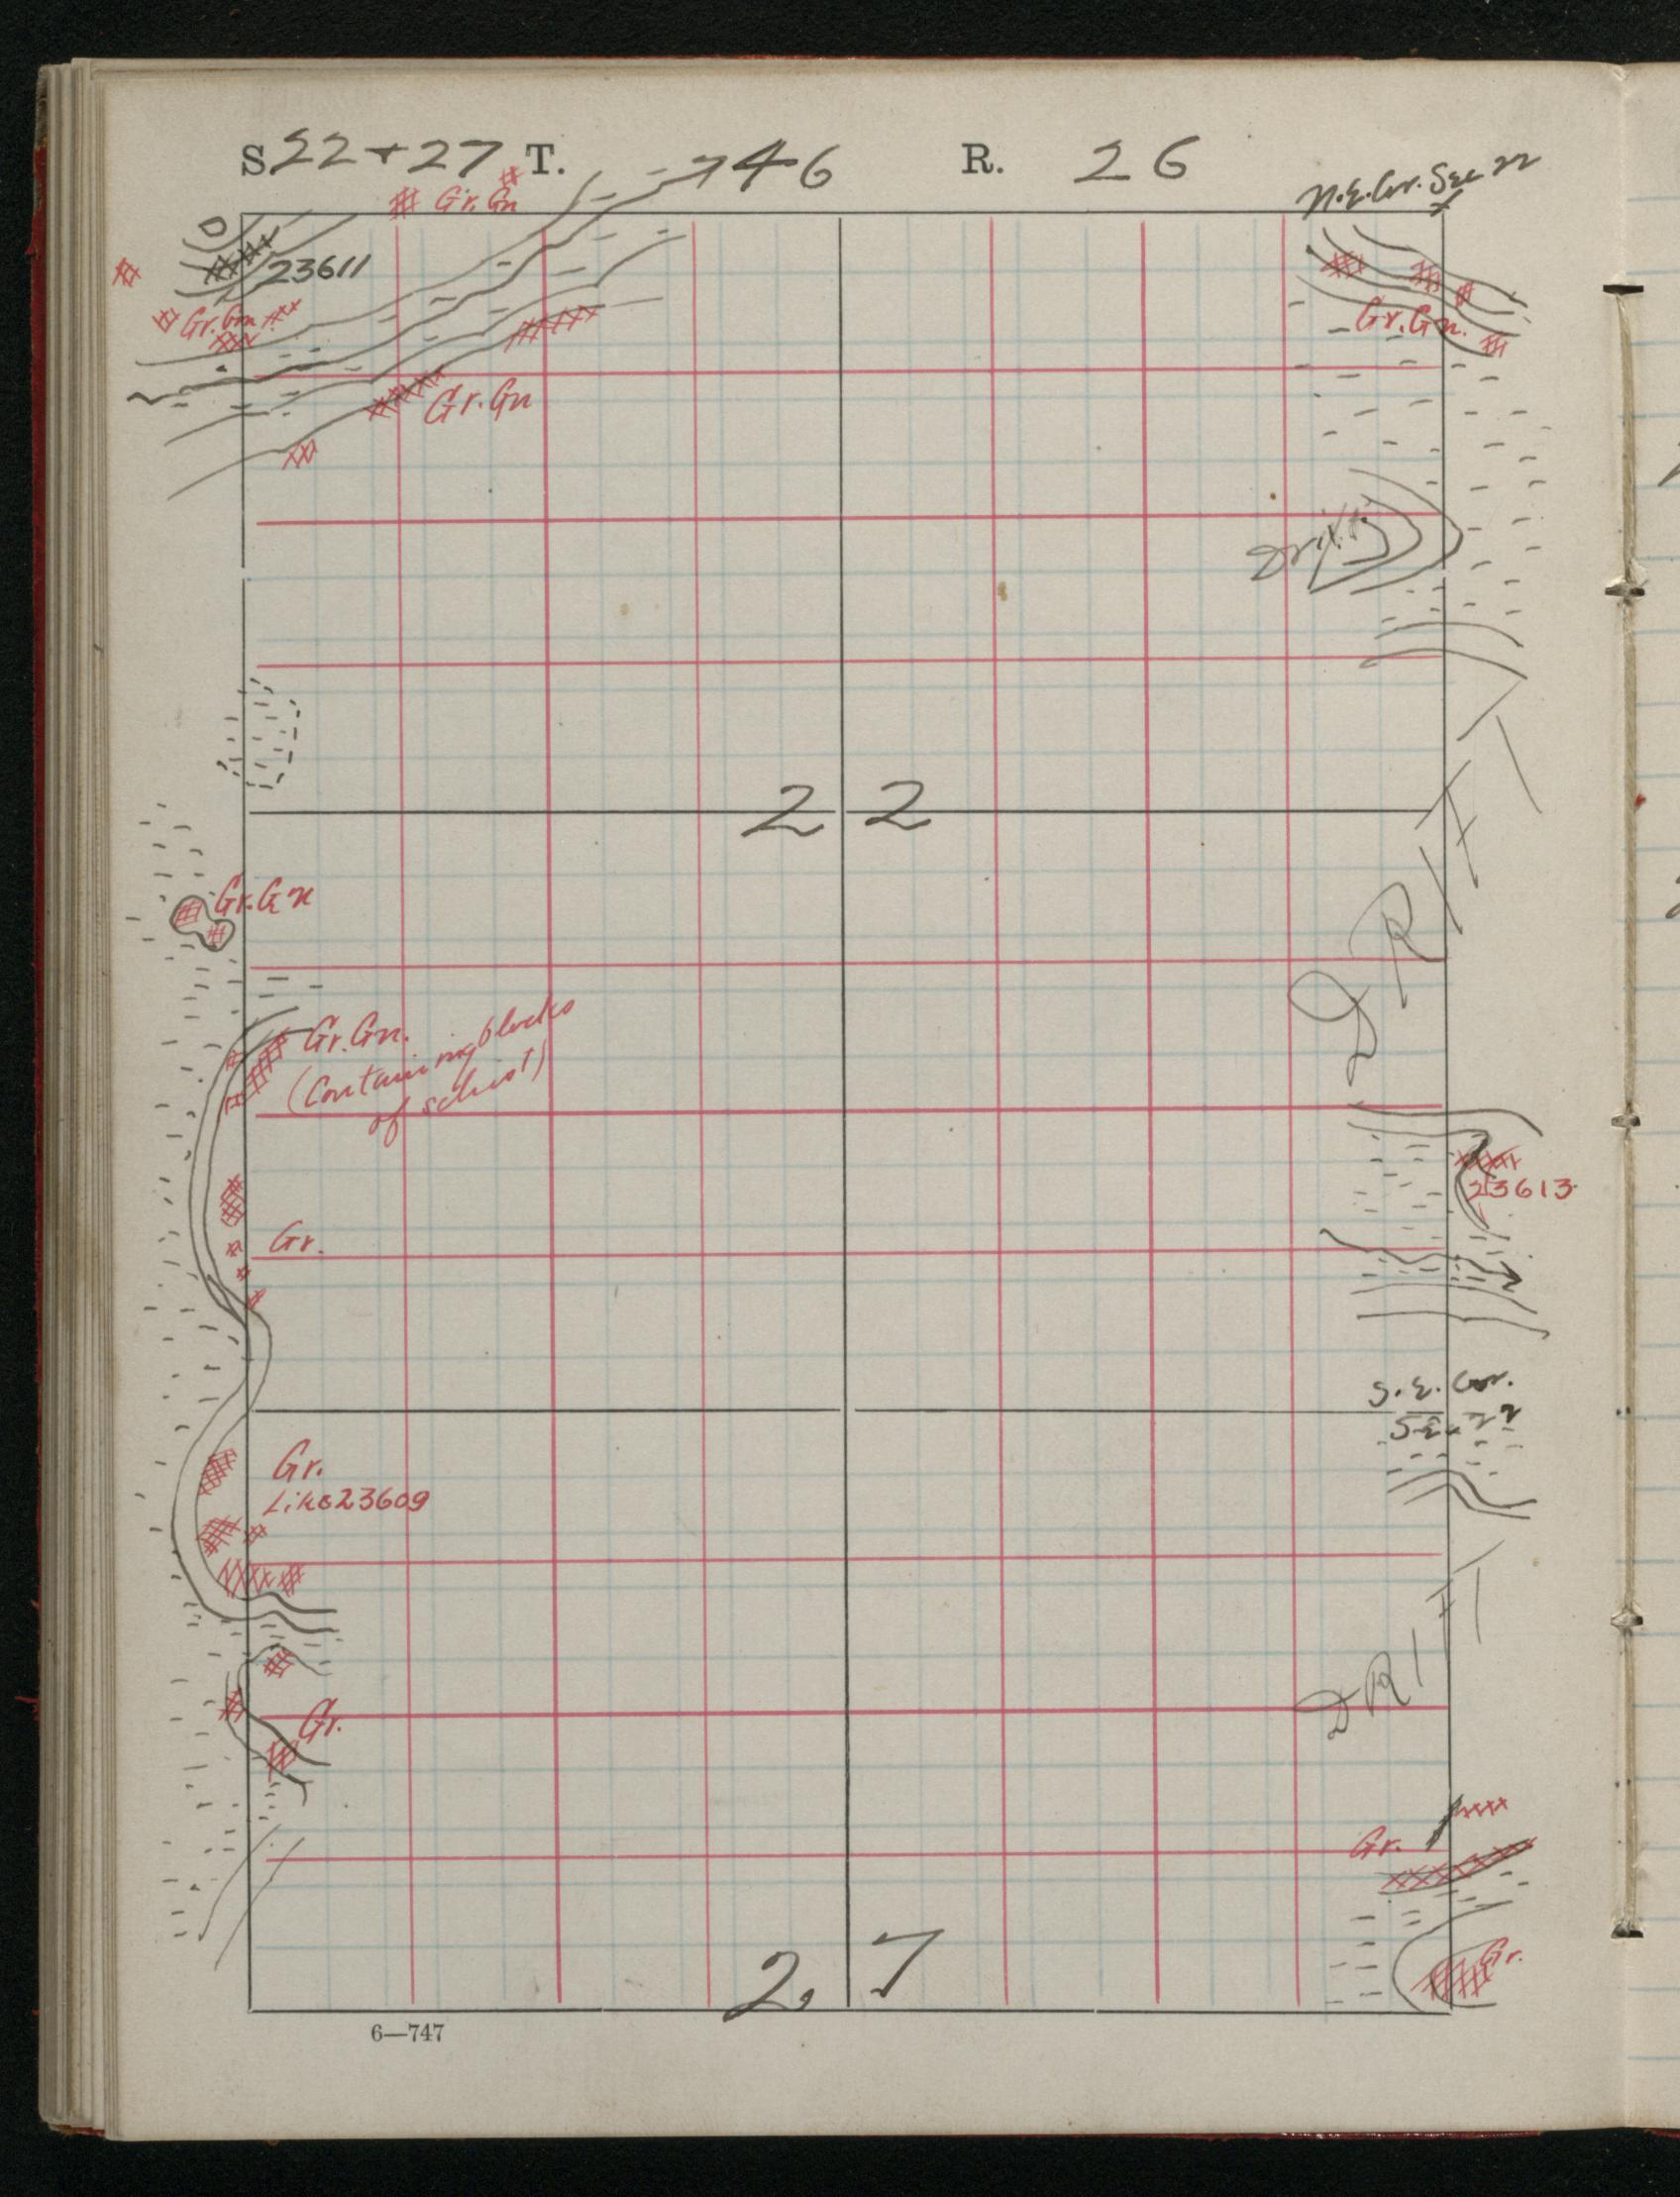 S. 22 + 27 T. 46 R. 26
N.E. Cor. Sec 22
Gr. Gn
23611
Gr. Gn
Gr. Gn.
Gr. Gn
Drift
22
Gr. Gn
DRIFT
Gr. Gn.
(Containing blocks
of schist)
23613
Gr.
S. E. Cor.
Sec 22
Gr.
Like 23609
DRIFT
Gr.
Gr.
Gr.
27
6—747